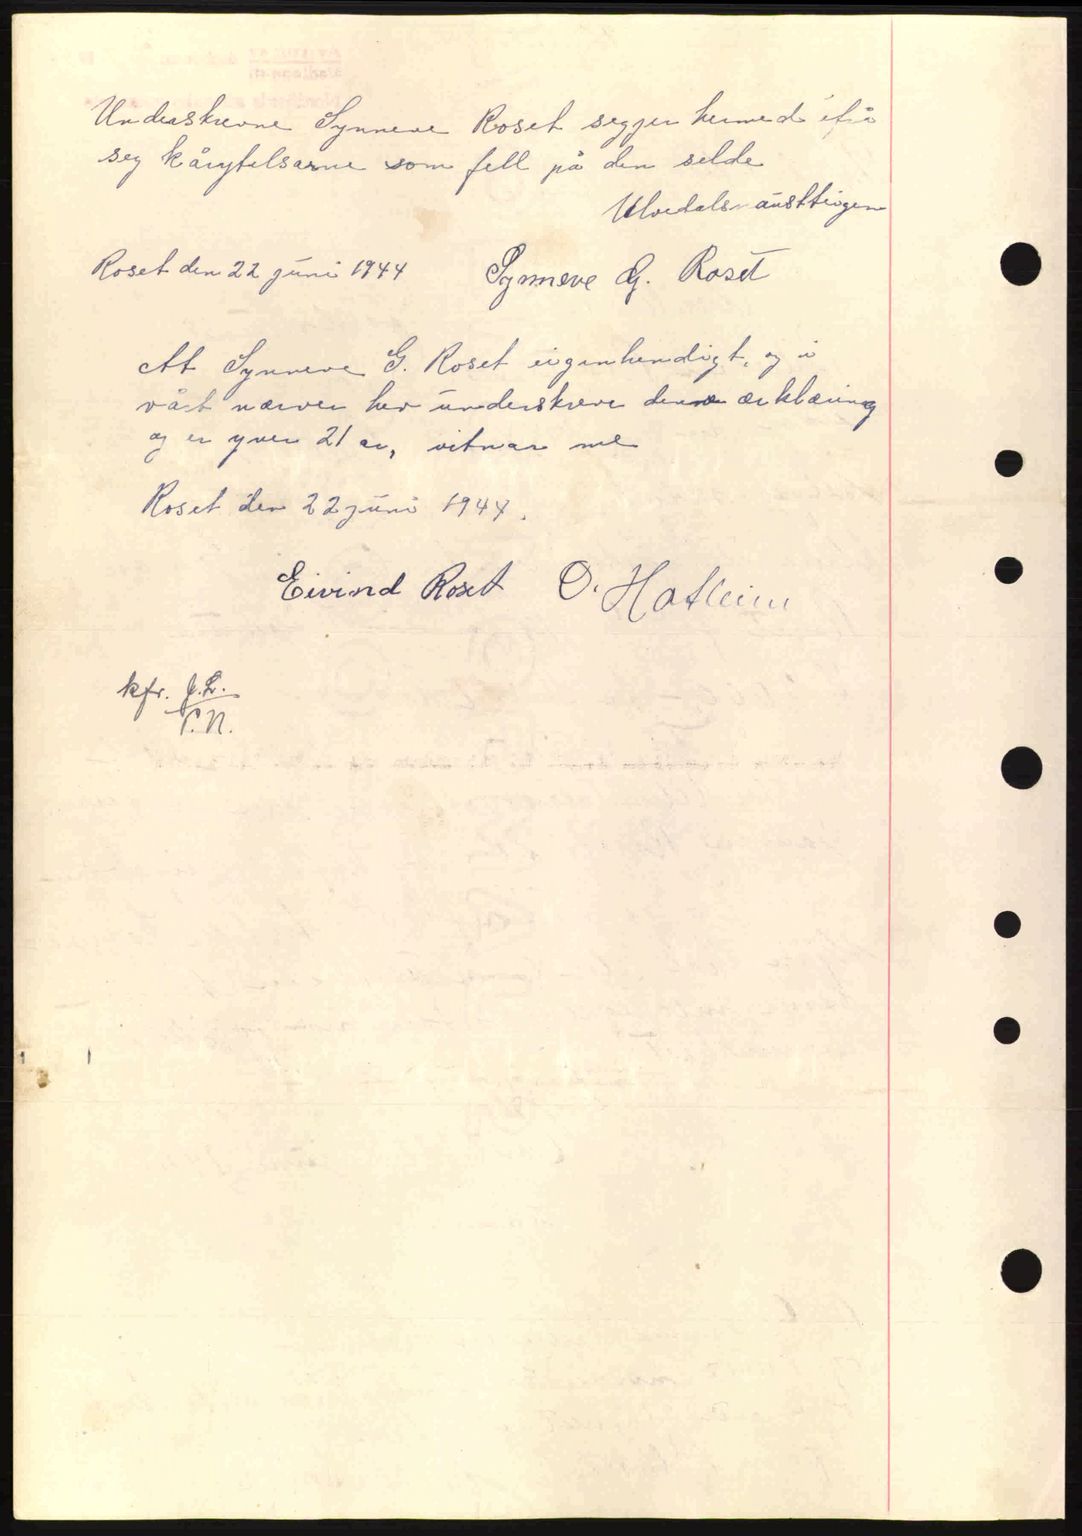 Underskrevne Synneve Roset segjer hermed ifrå
seg kårytelsarne som fell på den selde
Ulvedals austteigen
Roset den 22 juni 1944 Synneve G. Roset
At Synneve G. Roset eigenhendigt, og i
vårt nærver her underskreve denne ærklæring
og er yver 21 ar, vitnar me
Roset den 22 juni 1944.
Eivind Roset O. Hatleim
kfr. J.L.
P.N.